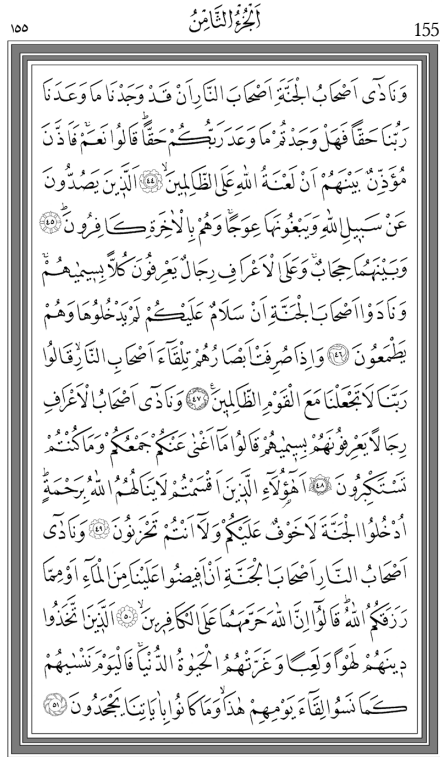 ١٥٥ اَلْجُزْءُ الثَّامِنُ 155
وَنَادٰٓى اَصْحَابُ الْجَنَّةِ اَصْحَابَ النَّارِ اَنْ قَدْ وَجَدْنَا مَا وَعَدَنَا
رَبُّنَا حَقًّا فَهَلْ وَجَدْتُمْ مَا وَعَدَ رَبُّكُمْ حَقًّاۜ قَالُوا نَعَمْۚ فَاَذَّنَ
مُؤَذِّنٌ بَيْنَهُمْ اَنْ لَعْنَةُ اللّٰهِ عَلَى الظَّالِم۪ينَۙ ﴿٤٤﴾ اَلَّذ۪ينَ يَصُدُّونَ
عَنْ سَب۪يلِ اللّٰهِ وَيَبْغُونَهَا عِوَجًاۚ وَهُمْ بِالْاٰخِرَةِ كَافِرُونَۜ ﴿٤٥﴾
وَبَيْنَهُمَا حِجَابٌۚ وَعَلَى الْاَعْرَافِ رِجَالٌ يَعْرِفُونَ كُلًّا بِس۪يمٰيهُمْۚ
وَنَادَوْا اَصْحَابَ الْجَنَّةِ اَنْ سَلَامٌ عَلَيْكُمْ لَمْ يَدْخُلُوهَا وَهُمْ
يَطْمَعُونَ ﴿٤٦﴾ وَاِذَا صُرِفَتْ اَبْصَارُهُمْ تِلْقَٓاءَ اَصْحَابِ النَّارِۙ قَالُوا
رَبَّنَا لَا تَجْعَلْنَا مَعَ الْقَوْمِ الظَّالِم۪ينَ۟ ﴿٤٧﴾ وَنَادٰٓى اَصْحَابُ الْاَعْرَافِ
رِجَالًا يَعْرِفُونَهُمْ بِس۪يمٰيهُمْ قَالُوا مَٓا اَغْنٰى عَنْكُمْ جَمْعُكُمْ وَمَا كُنْتُمْ
تَسْتَكْبِرُونَ ﴿٤٨﴾ اَهٰٓؤُ۬لَٓاءِ الَّذ۪ينَ اَقْسَمْتُمْ لَا يَنَالُهُمُ اللّٰهُ بِرَحْمَةٍۜ
اُدْخُلُوا الْجَنَّةَ لَا خَوْفٌ عَلَيْكُمْ وَلَٓا اَنْتُمْ تَحْزَنُونَ ﴿٤٩﴾ وَنَادٰٓى
اَصْحَابُ النَّارِ اَصْحَابَ الْجَنَّةِ اَنْ اَف۪يضُوا عَلَيْنَا مِنَ الْمَٓاءِ اَوْ مِمَّا
رَزَقَكُمُ اللّٰهُۜ قَالُٓوا اِنَّ اللّٰهَ حَرَّمَهُمَا عَلَى الْكَافِر۪ينَۙ ﴿٥٠﴾ اَلَّذ۪ينَ اتَّخَذُوا
د۪ينَهُمْ لَهْوًا وَلَعِبًا وَغَرَّتْهُمُ الْحَيٰوةُ الدُّنْيَاۚ فَالْيَوْمَ نَنْسٰيهُمْ
كَمَا نَسُوا لِقَٓاءَ يَوْمِهِمْ هٰذَاۙ وَمَا كَانُوا بِاٰيَاتِنَا يَجْحَدُونَ ﴿٥١﴾